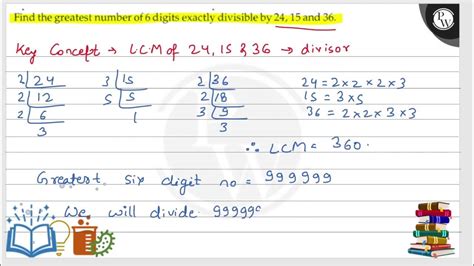 Find the greatest number of 6 digits exactly divisible by 24, 15 and 36.
Key Concept → LCM of 24, 15 & 36 → divisor
2 | 24   3 | 15   2 | 36   24 = 2×2×2×3
2 | 12   5 | 5   2 | 18   15 = 3×5
2 | 6   1   3 | 9   36 = 2×2×3×3
3   3
∴ LCM = 360.
Greatest six digit no = 999999
We will divide 999999